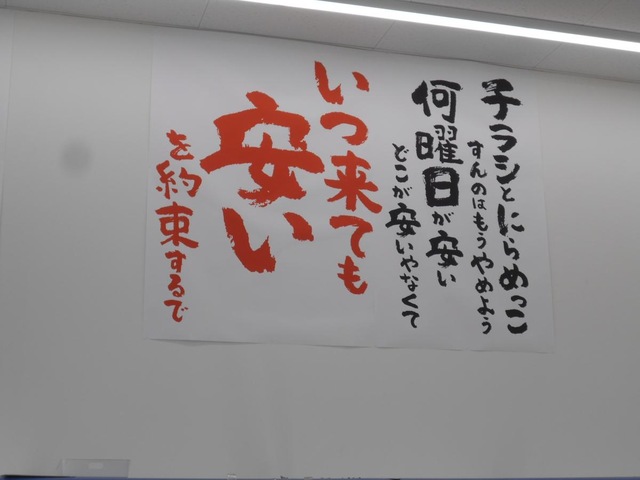 チラシとにらめっこ
すんのはもうやめよう
何曜日が安い
どこが安いやなくて
いつ来ても
安い
を約束するで